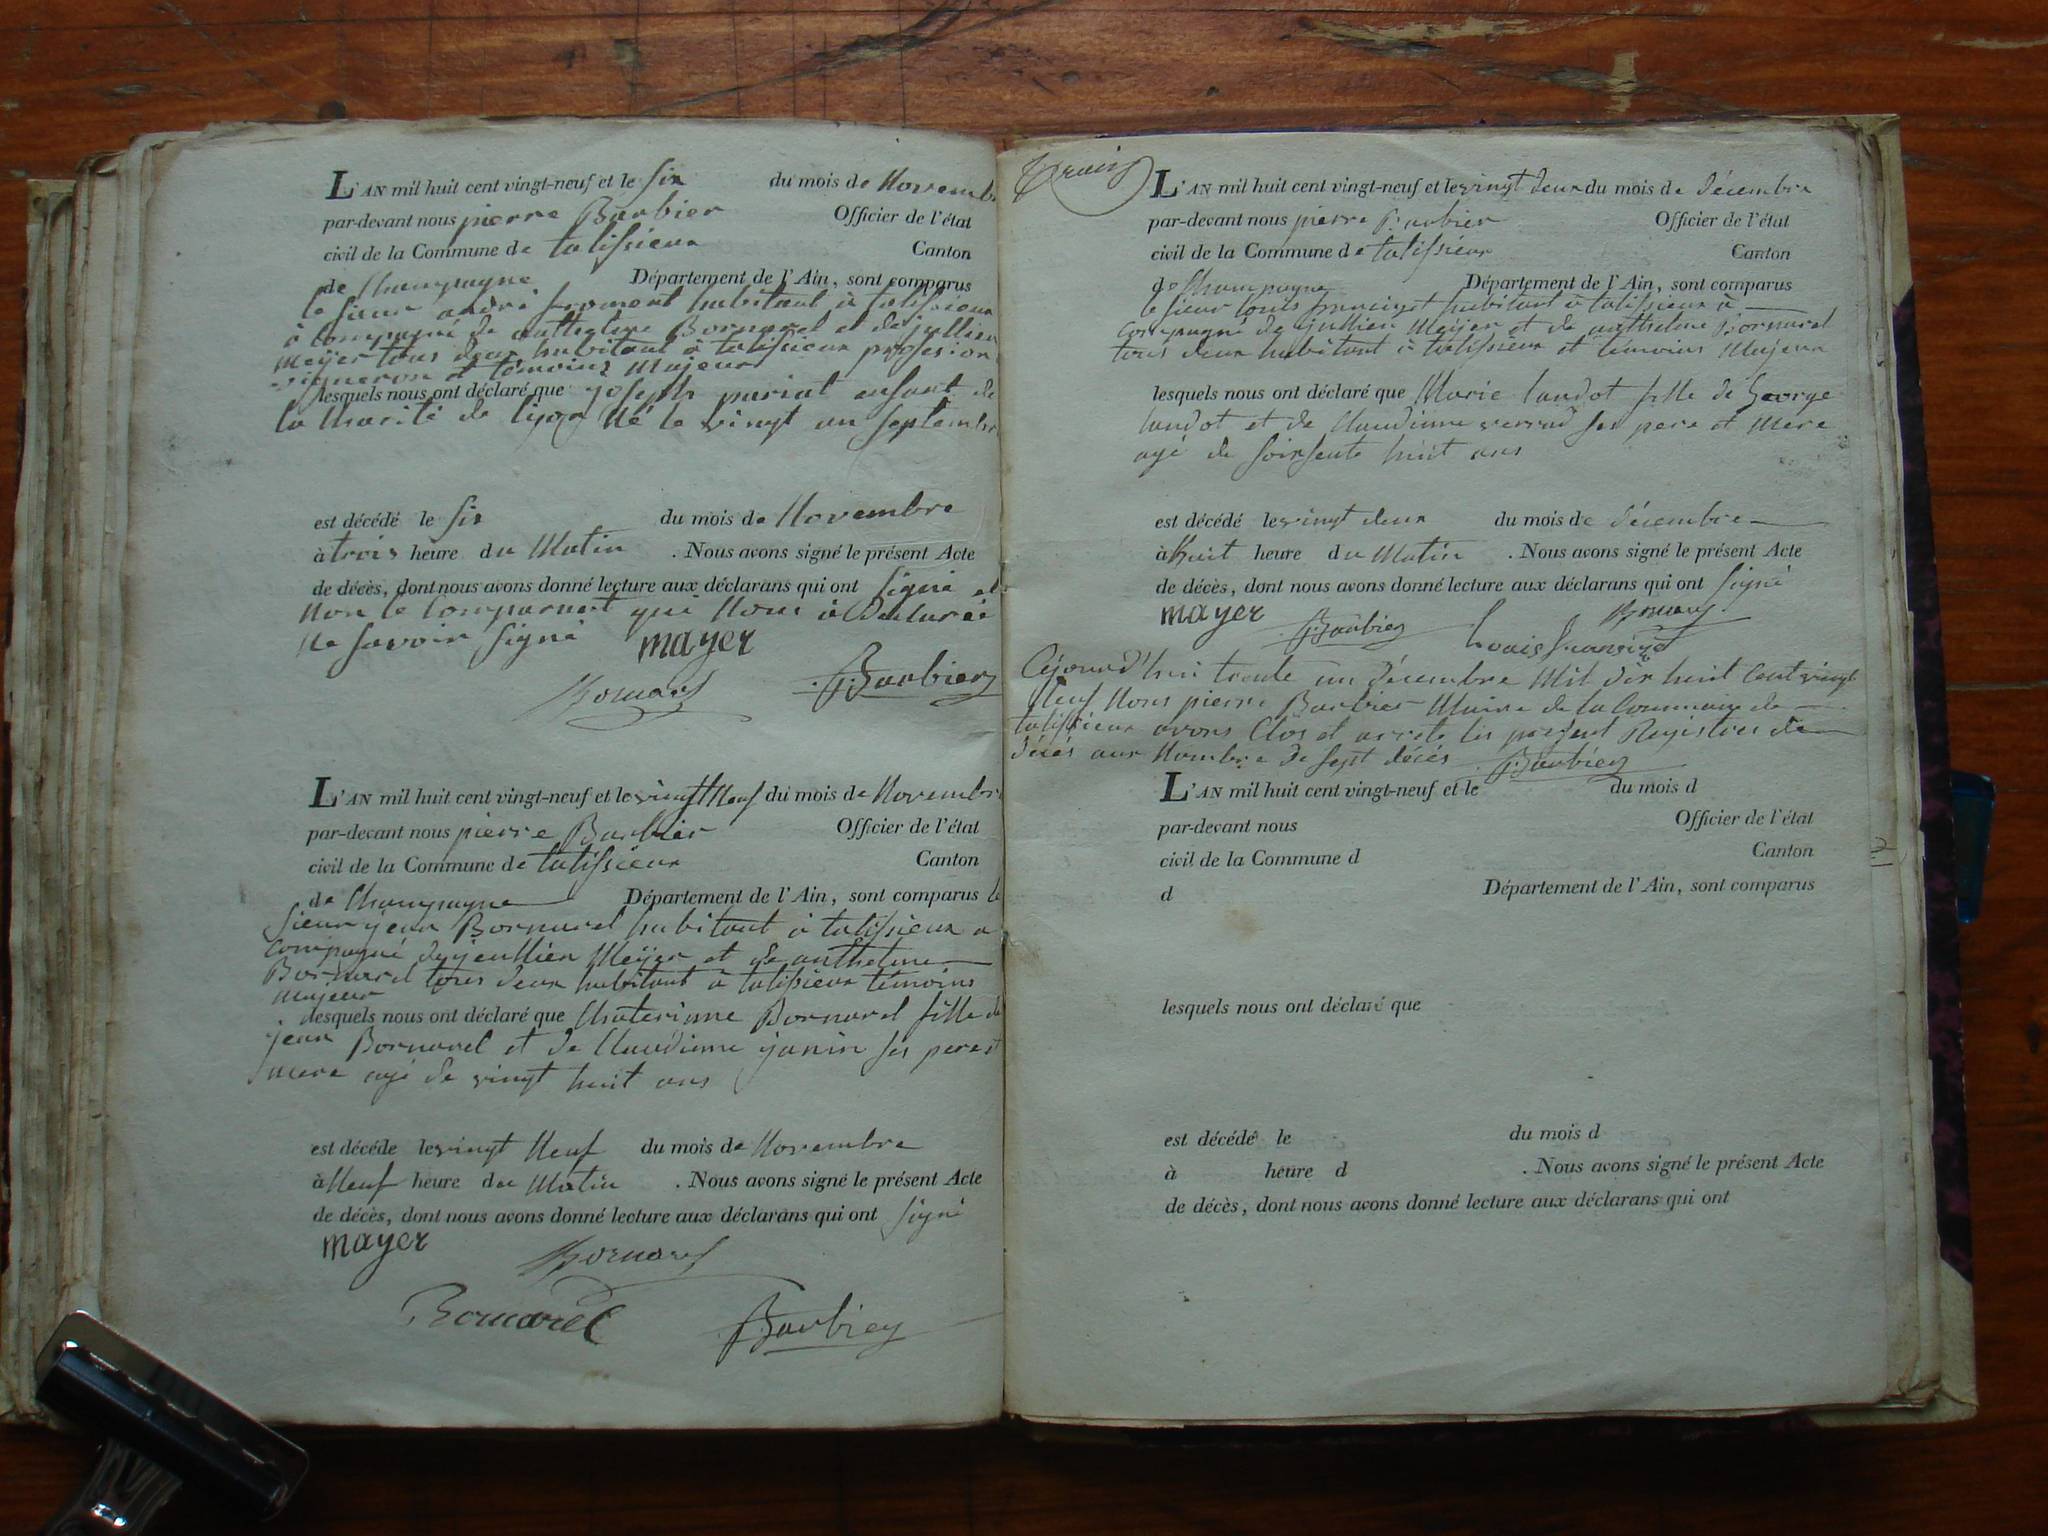 L'AN mil huit cent vingt-neuf et le six du mois de Novemb
par-devant nous pierre Barbier Officier de l'état
civil de la Commune de talissieux Canton
de Champagne Département de l'Ain, sont comparus
le sieur andré froment habitant à talissieux
à compagné de anthelme Bornarel et de jullien
Meÿer tous deux habitant à talissieux profesion
vigneron et témoins Majeur
lesquels nous ont déclaré que joseph enfant de
la Charité de Lyon Né le vingt un septembre
est décédé le six du mois de Novembre
à trois heure du Matin . Nous avons signé le présent Acte
de décès, dont nous avons donné lecture aux déclarans qui ont signé et
Non le Comparant qui Nous à Déclaréé
Ne savoir signé mayer
Bornarel Barbier
L'AN mil huit cent vingt-neuf et le vingt Neuf du mois de Novembre
par-devant nous pierre Barbier Officier de l'état
civil de la Commune de talissieux Canton
de Champagne Département de l'Ain, sont comparus le
sieur jean Bornarel habitant à talissieux a
Compagné de jeullien Meÿer et de anthelme
Bornarel tous deux habitant à talissieux témoins
majeur
lesquels nous ont déclaré que Chaterinne Bornarel fille de
jean Bornarel et de Claudinne janin ses pere et
mere agé de vingt huit ans
est décédé le vingt Neuf du mois de Novembre
à Neuf heure du Matin . Nous avons signé le présent Acte
de décès, dont nous avons donné lecture aux déclarans qui ont signé
mayer Bornarel
Bornarel Barbier
L'AN mil huit cent vingt-neuf et le vingt deux du mois de décembre
par-devant nous pierre Barbier Officier de l'état
civil de la Commune de talissieux Canton
de Champagne Département de l'Ain, sont comparus
le sieur louis habitant à talissieux à
Compagné de jullien Meÿer et de anthelme Bornarel
tous deux habitant à talissieux et témoins Majeur
lesquels nous ont déclaré que Marie landot fille de George
landot et de Claudinne ses pere et Mere
agé de soirsente huit ans
est décédé le vingt deux du mois de décembre
à huit heure du Matin . Nous avons signé le présent Acte
de décès, dont nous avons donné lecture aux déclarans qui ont signé
mayer Barbier Louis Bornarel
Cejourd'hui trente un décembre Mil dix huit Cent vingt
Neuf Nous pierre Barbier Maire de la Commune de
talissieux avons Clos et arreté les present Registres de
décés aux Nombre de sept décés Barbier
L'AN mil huit cent vingt-neuf et le du mois d
par-devant nous Officier de l'état
civil de la Commune d Canton
d Département de l'Ain, sont comparus
lesquels nous ont déclaré que
est décédé le du mois d
à heure d . Nous avons signé le présent Acte
de décès, dont nous avons donné lecture aux déclarans qui ont